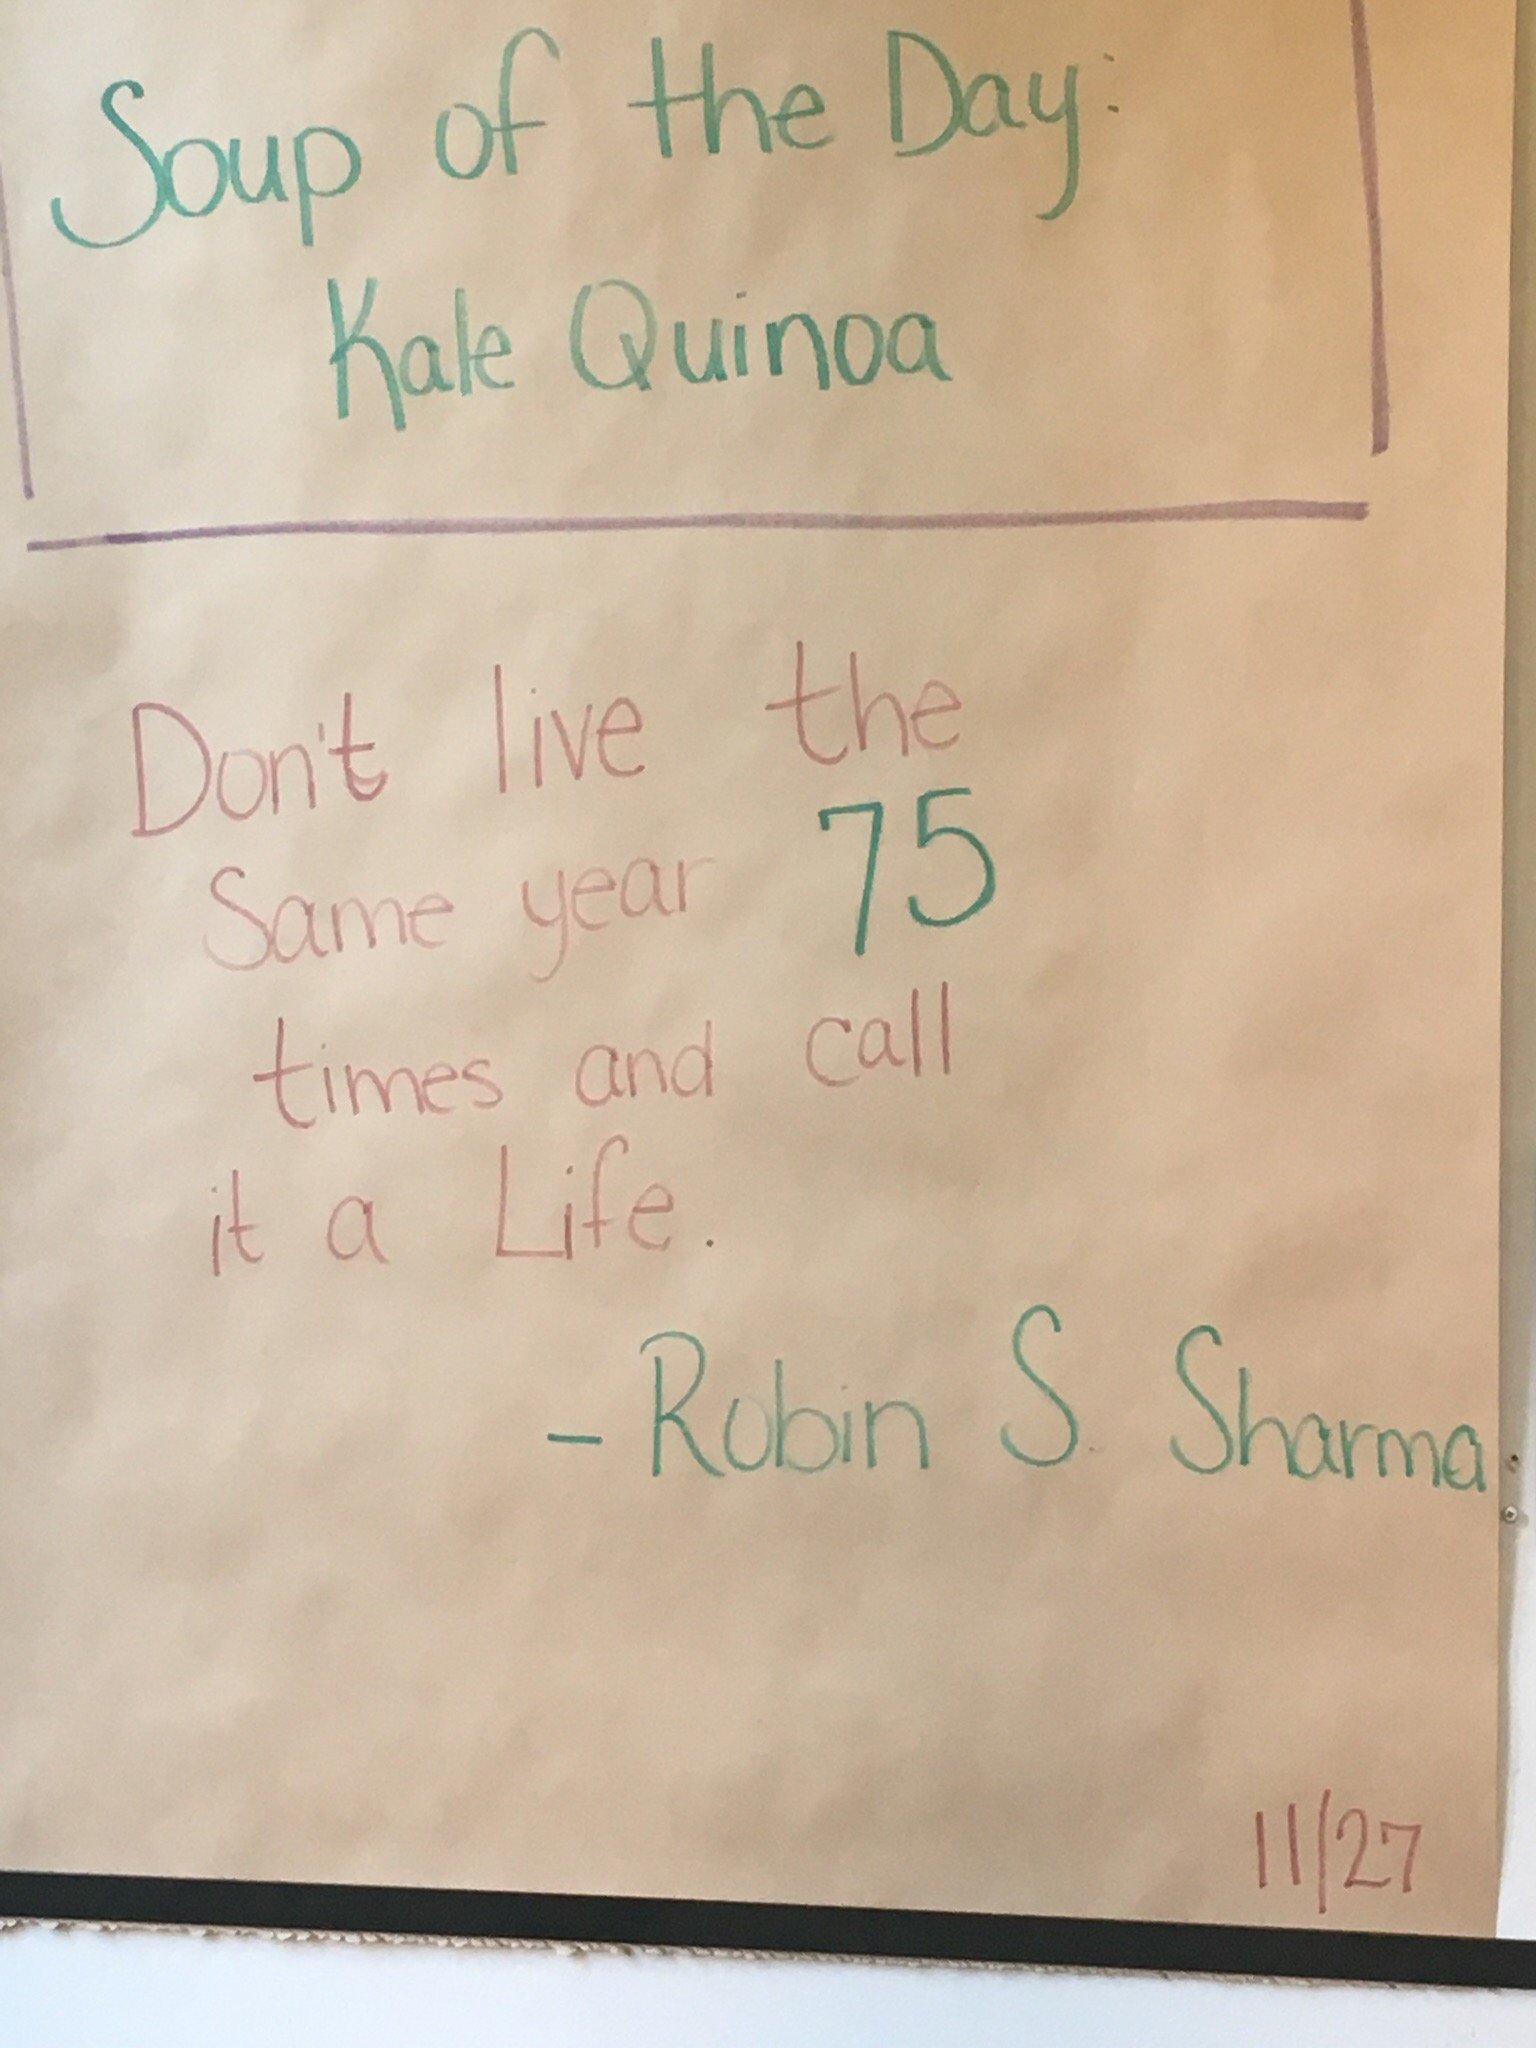 Soup of the Day:
Kale Quinoa
Don't live the
Same year 75
times and call
it a Life.
- Robin S. Sharma
11/27